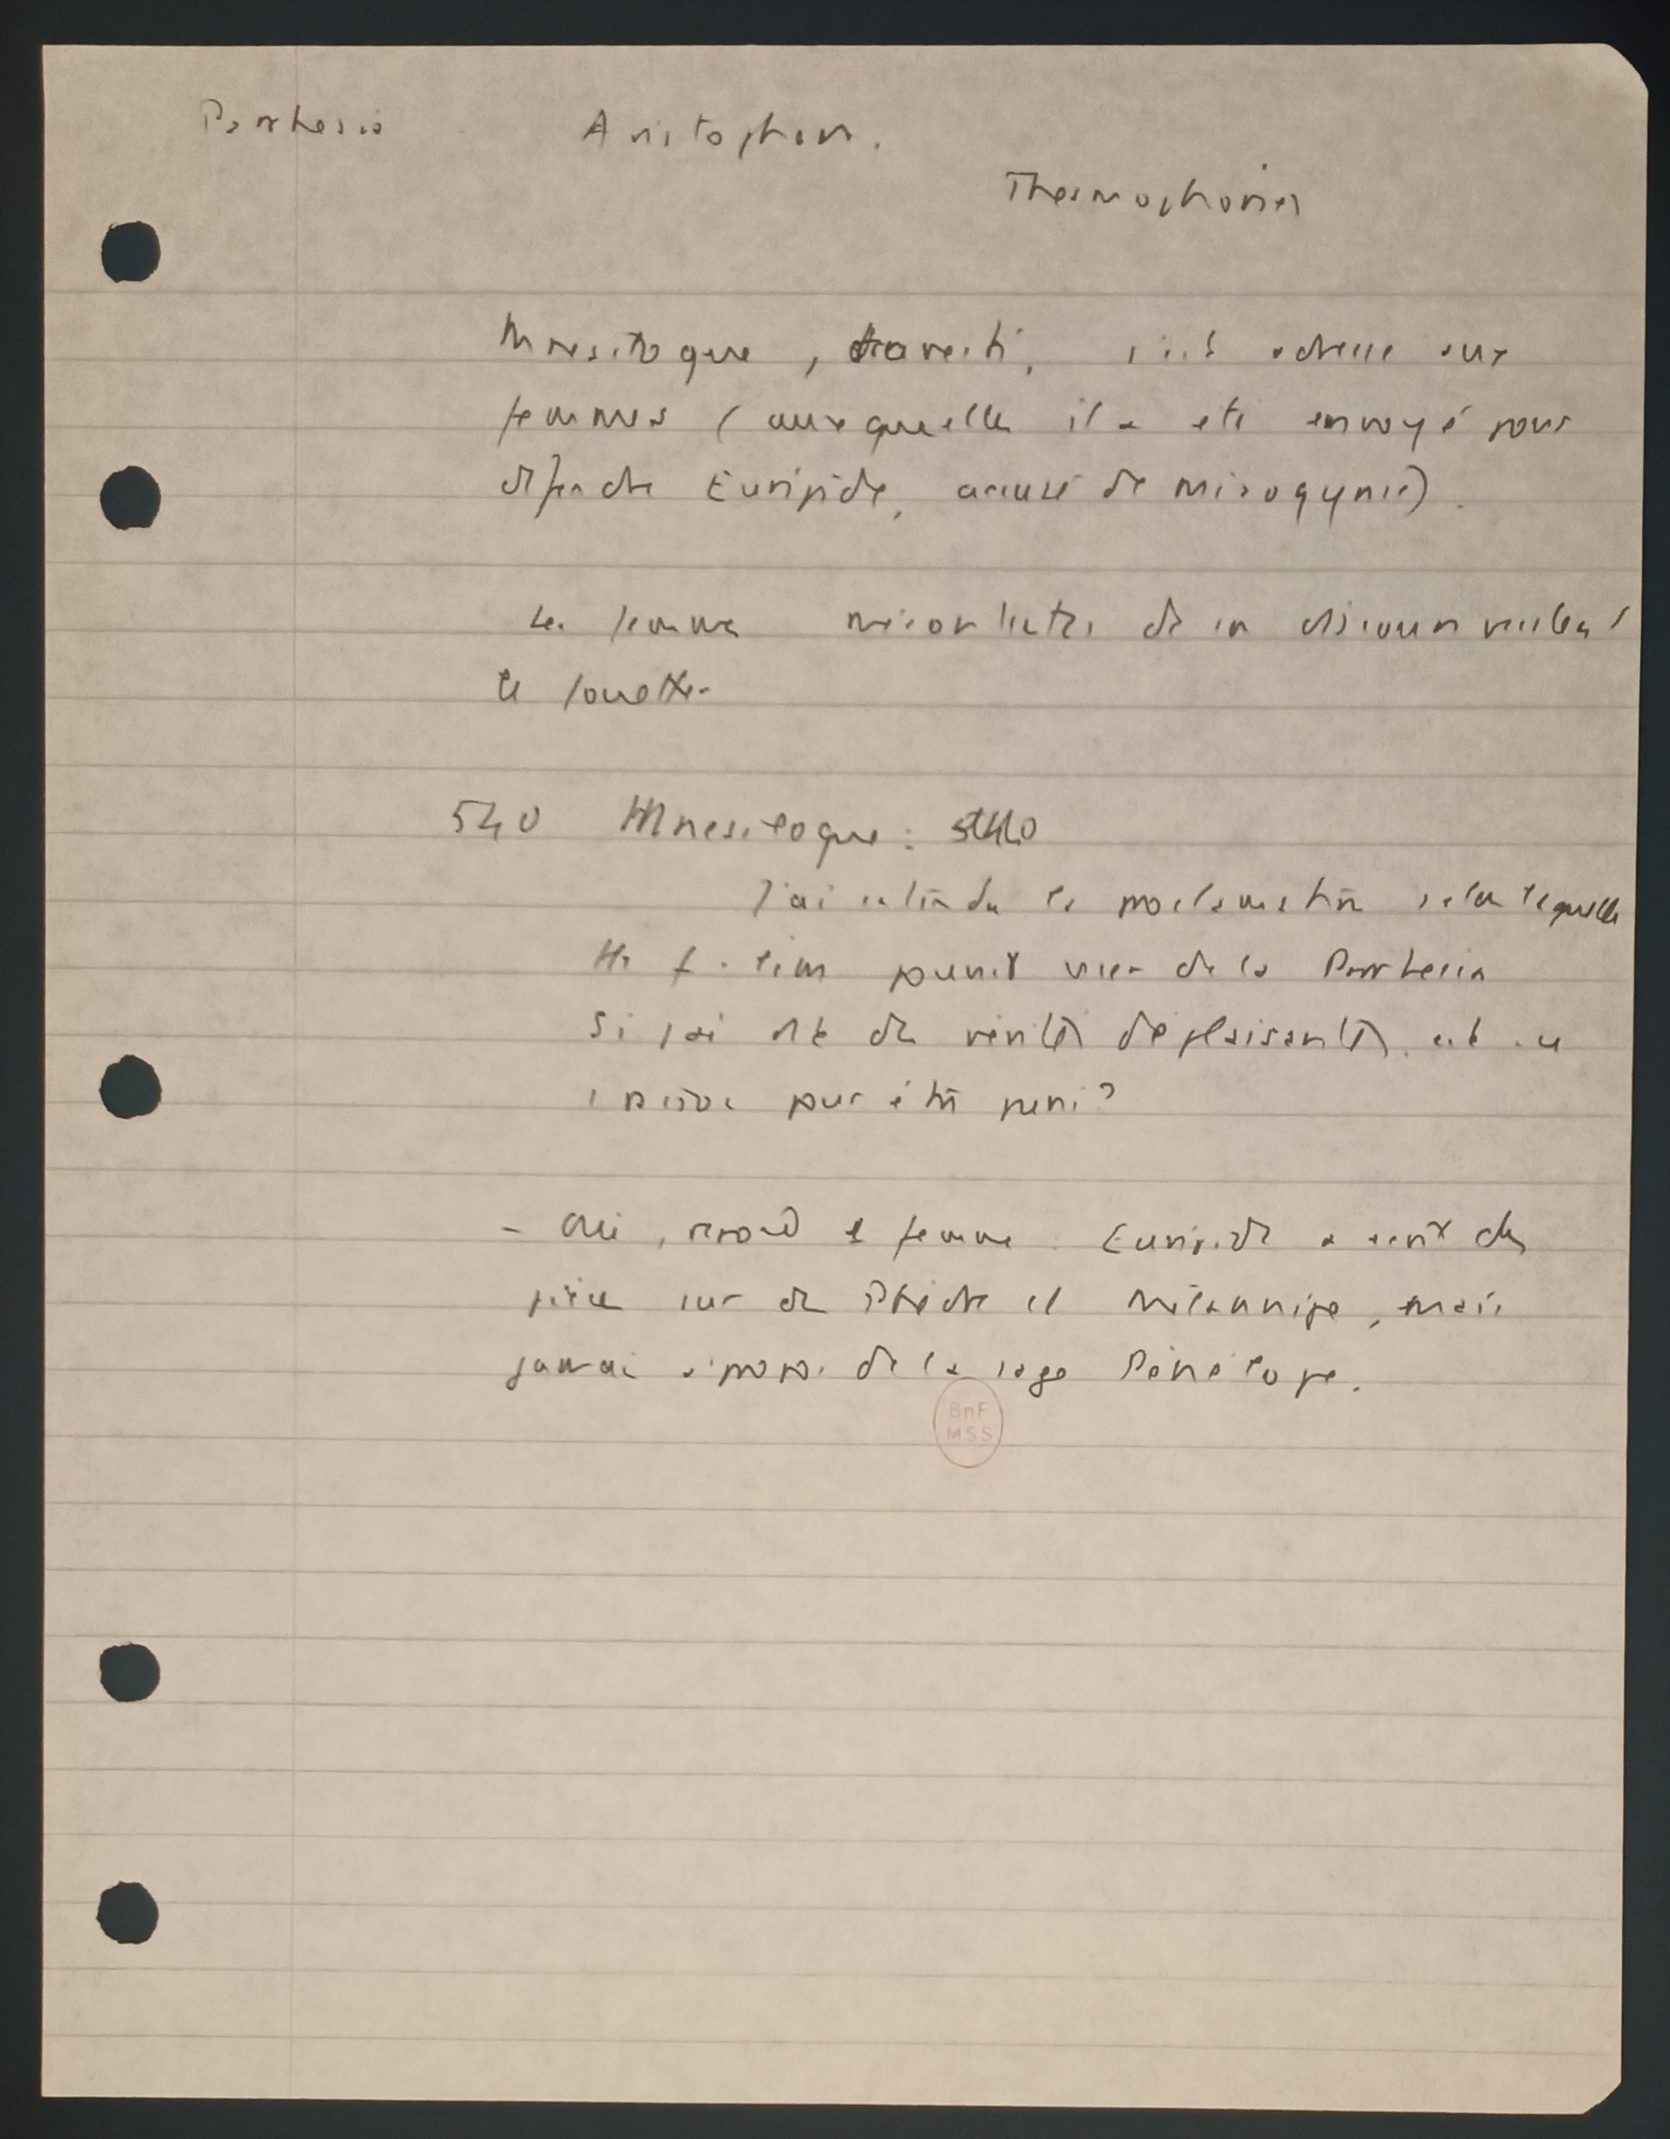 Parrhesia Aristophane.
Thesmophories
Mnesiloque, travesti, s'est adressé aux
femmes (auxquelles il a été envoyé pour
défendre Euripide, accusé de misogynie).
Les femmes mécontentes de son discours veulent
le fouetter
540 Mnesiloque :
J'ai entendu la proclamation selon laquelle
user de la Parrhesia
Si j'ai dit des vérités déplaisantes, est ce
une raison pour être puni?
- Oui, répond la femme. Euripide a écrit des
pièces sur des Phèdre et Mélannipe, mais
jamais à propos de la sage Pénélope.
BnF
MSS